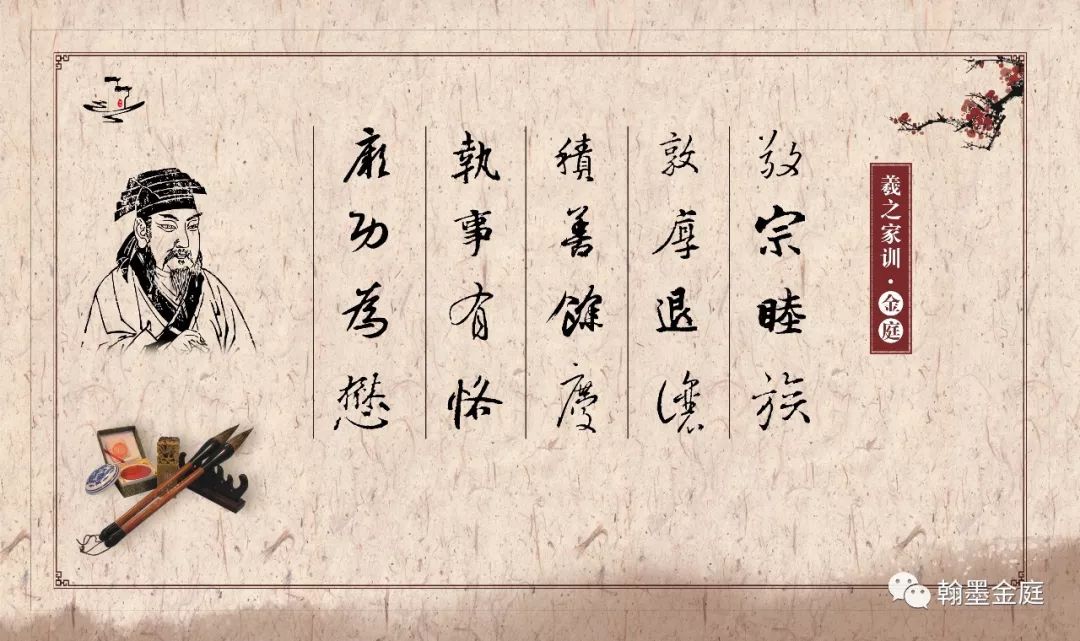 羲之家训·金庭
敬宗睦族
敦厚退讓
積善餘慶
執事有恪
厥功為懋
翰墨金庭